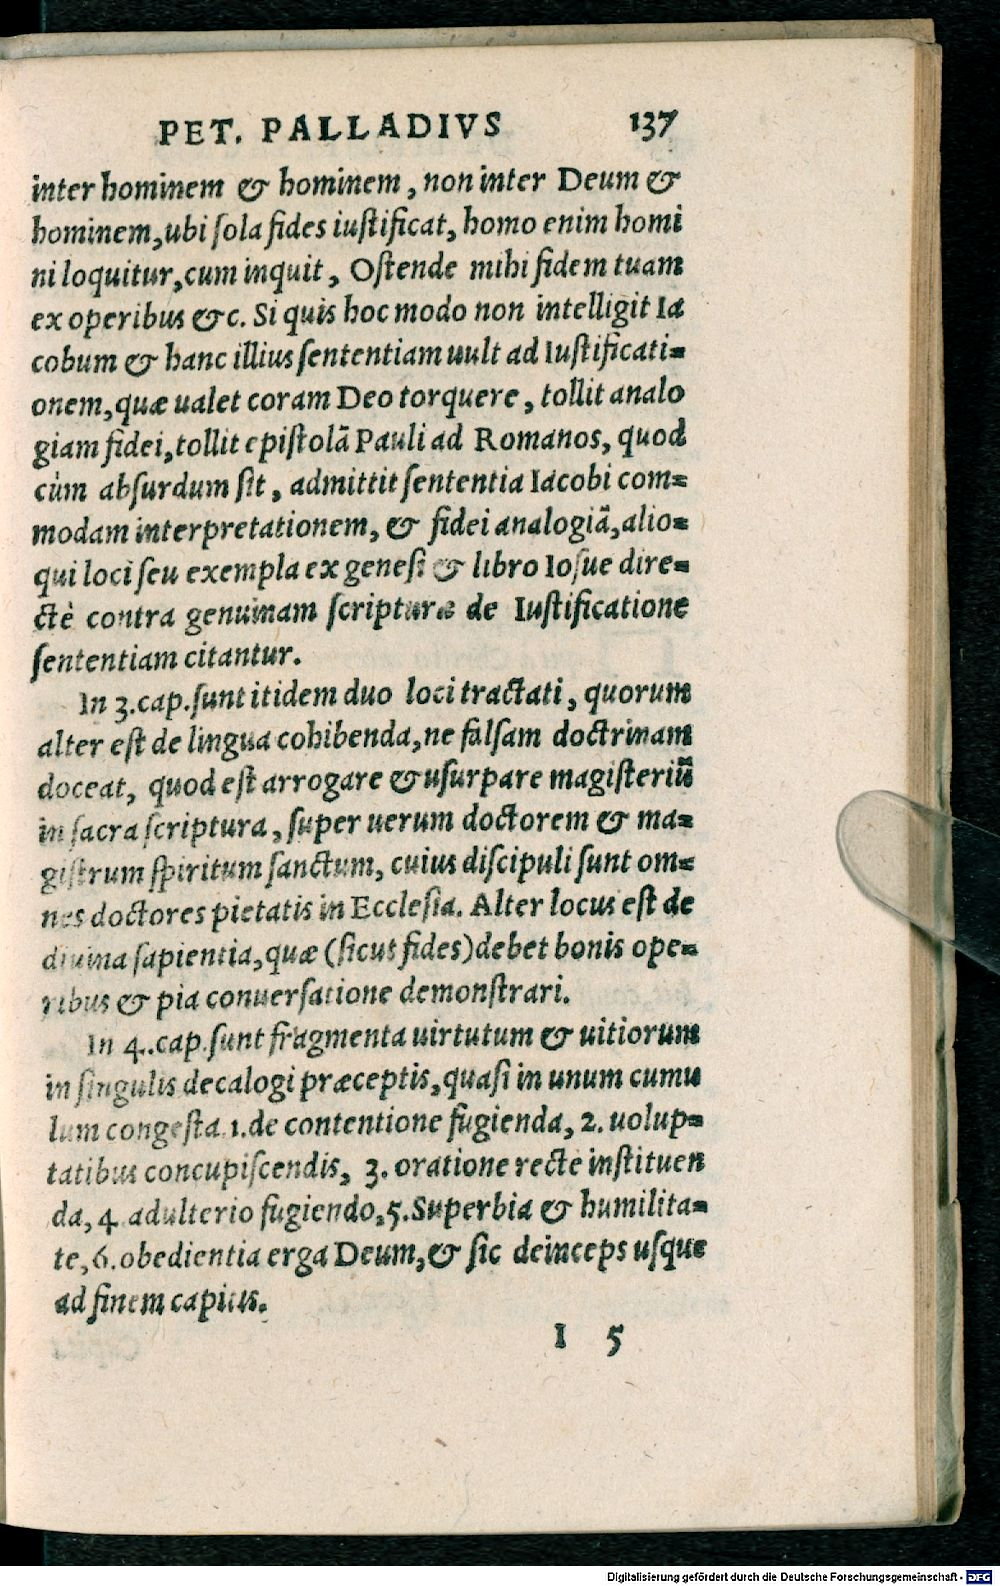 PET. PALLADIVS 137
inter hominem & hominem, non inter Deum &
hominem, ubi ſola fides iuſtificat, homo enim homi
ni loquitur, cum inquit, Oſtende mihi fidem tuam
ex operibus &c. Si quis hoc modo non intelligit Ia
cobum & hanc illius ſententiam uult ad Iuſtificati=
onem, quæ ualet coram Deo torquere, tollit analo
giam fidei, tollit epiſtolã Pauli ad Romanos, quod
cùm abſurdum ſit, admittit ſententia Iacobi com=
modam interpretationem, & fidei analogiã, alio=
qui loci ſeu exempla ex geneſi & libro Ioſue dire=
ctè contra genuinam ſcripturæ de Iuſtificatione
ſententiam citantur.
In 3. cap. ſunt itidem duo loci tractati, quorum
alter eſt de lingua cohibenda, ne falſam doctrinam
doceat, quod eſt arrogare & uſurpare magiſteriũ
in ſacra ſcriptura, ſuper uerum doctorem & ma=
giſtrum ſpiritum ſanctum, cuius diſcipuli ſunt om=
nes doctores pietatis in Eccleſia. Alter locus eſt de
diuina ſapientia, quæ (ſicut fides) debet bonis ope=
ribus & pia conuerſatione demonſtrari.
In 4. cap. ſunt fragmenta uirtutum & uitiorum
in ſingulis decalogi præceptis, quaſi in unum cumu
lum congeſta. 1. de contentione fugienda, 2. uolup=
tatibus concupiſcendis, 3. oratione recte inſtituen
da, 4. adulterio fugiendo, 5. Superbia & humilita=
te, 6. obedientia erga Deum, & ſic deinceps uſque
ad finem capitis.
I 5
Digitalisierung gefördert durch die Deutsche Forschungsgemeinschaft - DFG